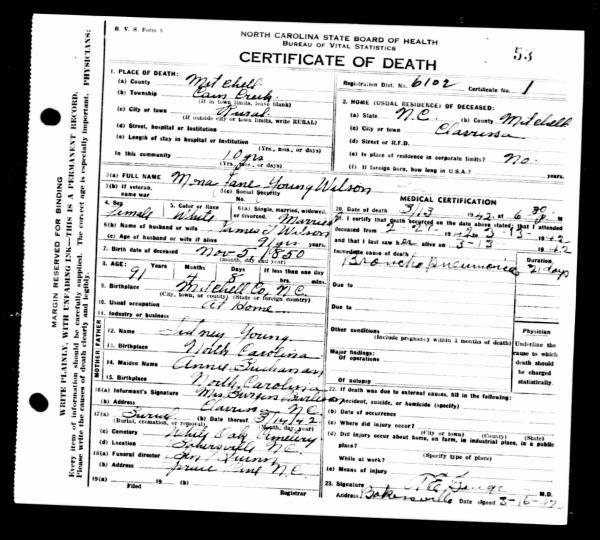 B. V. S. Form 8
NORTH CAROLINA STATE BOARD OF HEALTH
BUREAU OF VITAL STATISTICS
CERTIFICATE OF DEATH
53
Registration Dist. No. 6102 Certificate No. 1
MARGIN RESERVED FOR BINDING
WRITE PLAINLY, WITH UNFADING INK—THIS IS A PERMANENT RECORD.
Every item of information should be carefully supplied. The correct age is specially important. PHYSICIANS:
Please write the causes of death clearly and legibly.
1. PLACE OF DEATH:
(a) County Mitchell
(b) Township Cane Creek
(If in town limits, leave blank)
(c) City or town Rural
(If outside city or town limits, write RURAL)
(d) Street, hospital or Institution
(e) Length of stay in hospital or Institution
(Yrs., mos., or days)
In this community 10 yrs
(Yrs., mos., or days)
2. HOME (USUAL RESIDENCE) OF DECEASED:
(a) State N.C. (b) County Mitchell
(c) City or town Clarrissa
(d) Street or R.F.D.
(e) Is place of residence in corporate limits? No.
(f) If foreign born, how long in U.S.A.? years
3(a) FULL NAME Mona Jane Young Wilson
3(b) If veteran, name war 3(c) Social Security No.
4. Sex Female 5. Color or Race White 6(a) Single, married, widowed, or divorced. Married
6(b) Name of husband or wife James T Wilson
6(c) Age of husband or wife if alive 91 yrs
7. Birth date of deceased Nov 5 1850
(Month, day and year)
8. AGE: Years 91 Months 4 Days 8 If less than one day hrs. min.
9. Birthplace Mitchell Co, N.C.
(City, town, or county) (State or foreign country)
10. Usual occupation At Home
11. Industry or business
FATHER
12. Name Sidney Young
13. Birthplace North Carolina
MOTHER
14. Maiden Name Annie Buchanan
15. Birthplace North Carolina
16(a) Informant's Signature Mrs Burgess
(b) Address Clarrissa N.C.
17(a) Burial (b) Date thereof 3/14/42
(Burial, cremation, or removal) (Month, day, year)
(c) Cemetery White Oak Cemetery
(d) Location Bakersville N.C.
18(a) Funeral director
(b) Address Spruce Pine N.C.
19(a) Filed 19 (b) Registrar
MEDICAL CERTIFICATION
20. Date of death 3/13 1942 at 6:30 P. M
21. I certify that death occurred on the date above stated; that I attended
deceased from 2-2 1942 3-13- 1942
and that I last saw her alive on 3-13 1942
Immediate cause of death Duration
Broncho Pneumonia 21 days
Due to
Due to
Other conditions
(Include pregnancy within 3 months of death)
Major findings:
Of operations
Of autopsy
Physician
Underline the cause to which death should be charged statistically.
22. If death was due to external causes, fill in the following:
(a) Accident, suicide, or homicide (specify)
(b) Date of occurrence
(c) Where did injury occur?
(City or town) (County) (State)
(d) Did injury occur about home, on farm, in industrial place, in a public place?
(Specify type of place)
While at work?
(e) Means of injury
23. Signature M.D.
Address Bakersville Date signed 3-15-42